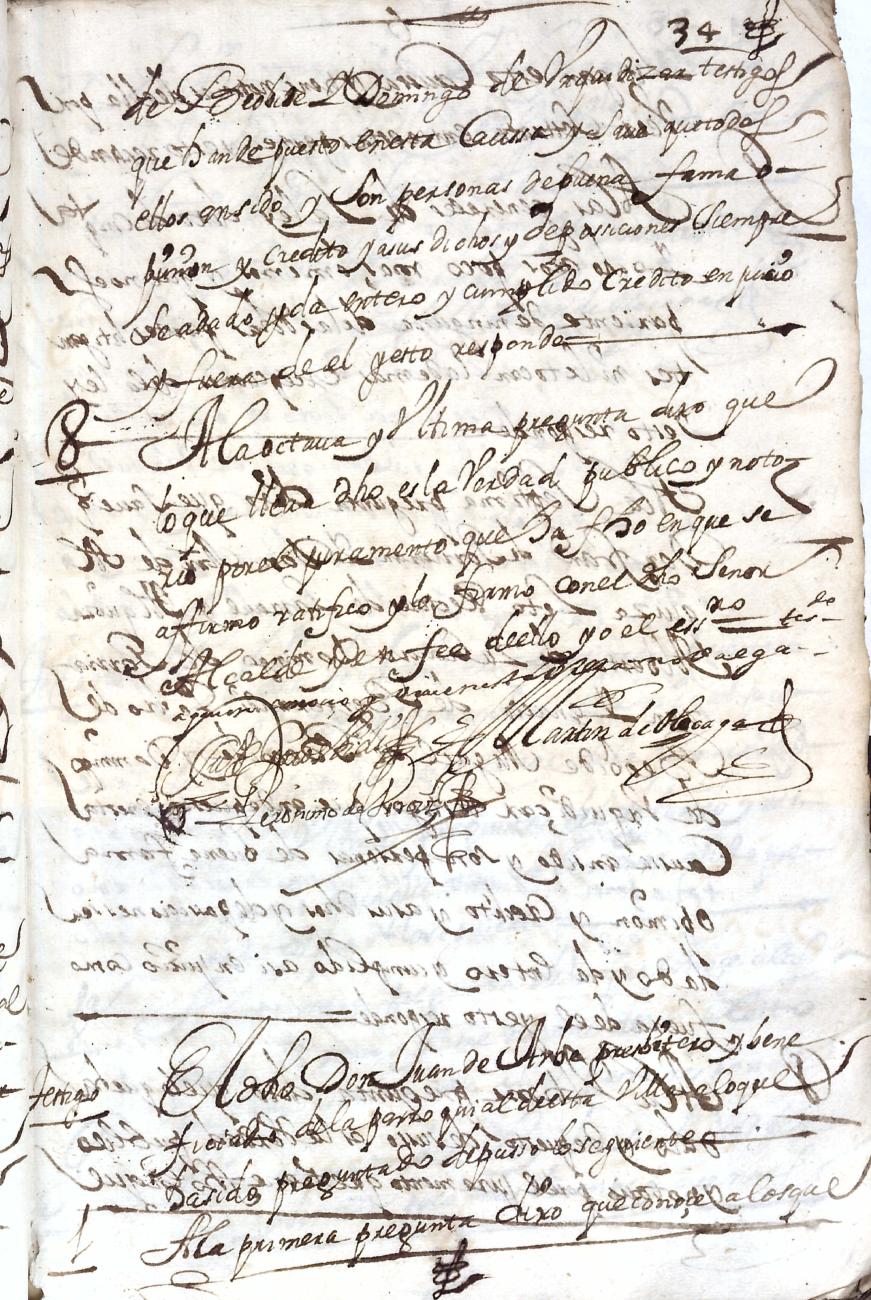 34
de Beobide Domingo de Urquidizar testigos
que han depuesto en esta Caussa y save que todos
ellos an sido y Son personas de buena fama o-
pinion y Credito y a sus dichos y deposiciones Siempre
se a dado y da entero y cumplido Credito en juicio
y fuera de el y esto responde
8 A la octava y Ultima pregunta dixo que
lo que lleva dho es la Verdad publico y noto
rio por el juramento que ha fho en que se
affirmo ratifico y lo firmo con el dho Senor
Alcalde y en fee de ello yo el essno
Martin de
Geronimo de
testigo El dho Don Juan de presbitero y bene
ficiado de la parroquial desta Villa a lo que
a sido preguntado depusso lo seguiente
1 A la primera pregunta dixo que conoçe a los que